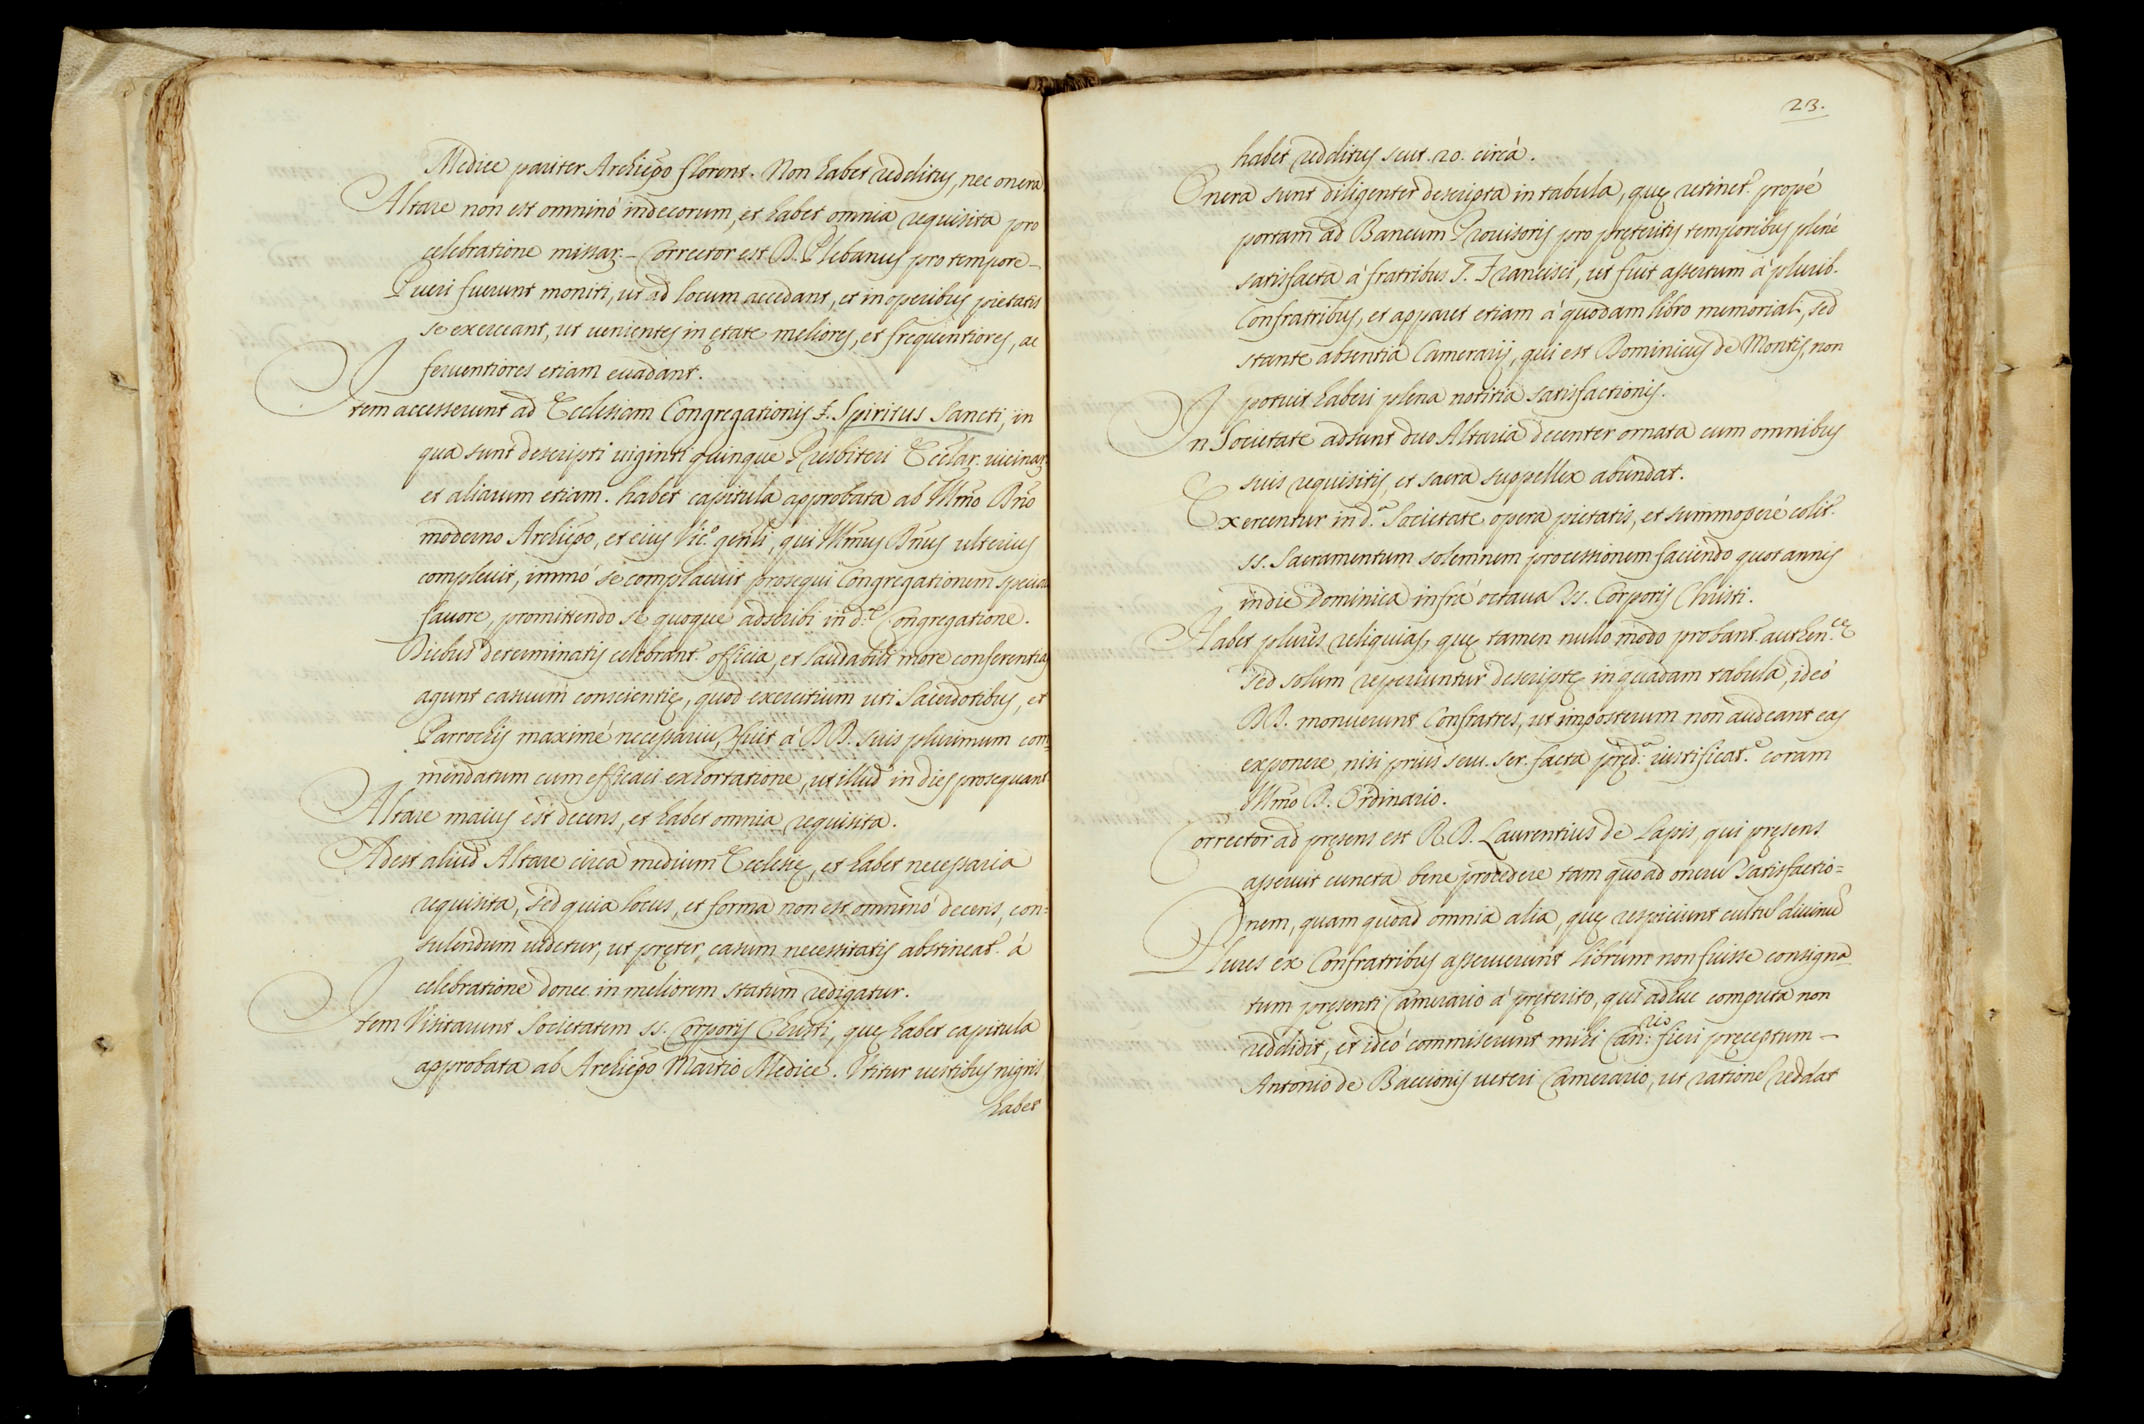 Medice pariter Archiepo florent. Non habet redditus, nec onera
Altare non est omninò indecorum, et habet omnia requisita pro
celebratione missar: - Corrector est D. Plebanus pro tempore -
Pueri fuerunt moniti, ut ad locum accedant, et in operibus pietatis
se exerceant, ut uenientes in ętate meliores, et frequentiores, ac
feruentiores etiam euadant.
Item accesserunt ad Ecclesiam Congregationis S. Spiritus Sancti, in
qua sunt descripti uiginti quinque Presbiteri Ecclar. uicinar.
et aliarum etiam. habet capitula approbata ab Illmo Dno
moderno Archiepo, et eius Vic.º genli, qui Illmus Dnus ulterius
compleuit, immò se complacuit prosequi Congregationem speciali
fauore, promittendo se quoque adscribi in d.ª Congregatione.
Diebus determinatis celebrant. officia, et laudabili more conferentia
agunt casuum conscientię, quod exercitium uti Sacerdotibus, et
Parrochis maximè necessariu, fuit à DD. suis plurimum com=
mendatum cum efficaci exhortatione, ut illud in dies prosequant
Altare maius est decens, et habet omnia requisita.
Adest aliud Altare circa medium Ecclesię, et habet necessaria
requisita, sed quia locus, et forma non est omninò decens, con=
sulendum uidetur, ut pręter casum necessitatis abstineat. à
celebratione donec in meliorem statum redigatur.
Item Visitarunt Societatem SS. Corporis Christi, quę habet capitula
approbata ab Archiepo Martio Medice. Vtitur uestibus nigris
habet
23.
habet redditus scut. 20. circà.
Onera sunt diligenter descripta in tabula, quę retinet. propè
portam ad Bancum Prouisoris pro pręteritis temporibus plenè
satisfacta à fratribus S. Francisci, ut fuit assertum à plurib.
Confratribus, et apparet etiam à quodam libro memorial, sed
stante absentia Camerarij, qui est Dominicus de Montis, non
potuit haberi plena notitia satisfactionis.
In Societate adsunt duo Altaria decenter ornata cum omnibus
suis requisitis, et sacra suppellex abundat.
Exercentur in d.ª Societate opera pietatis, et summoperè colit.
SS. Sacramentum solemnem processionem faciendo quot annis
in die Dominica infrà octaua SS. Corporis Christi.
Habet plures reliquias, quę tamen nullo modo probant. authen.cę
sed solum reperiuntur descriptę in quadam tabula, ideò
DD. monuerunt Confratres, ut imposterum non audeant eas
exponere, nisi priùs seru. ser. facta pręd.ª iustificat.e coram
Illmo D. Ordinario.
Corrector ad pręsens est R.D. Laurentius de Lapis, qui pręsens
asseruit cuncta bene procedere tam quo ad oneru Satisfactio=
nem, quam quoad omnia alia, quę respiciunt cultu diuinu
Plures ex Confratribus asseruerunt librum non fuisse consigna
tum pręsenti Camerario à pręterito, qui adhuc computa non
reddidit, et ideò commiserunt mihi Can:rio fieri pręceptum -
Antonio de Baccionis ueteri Camerario, ut ratione reddat